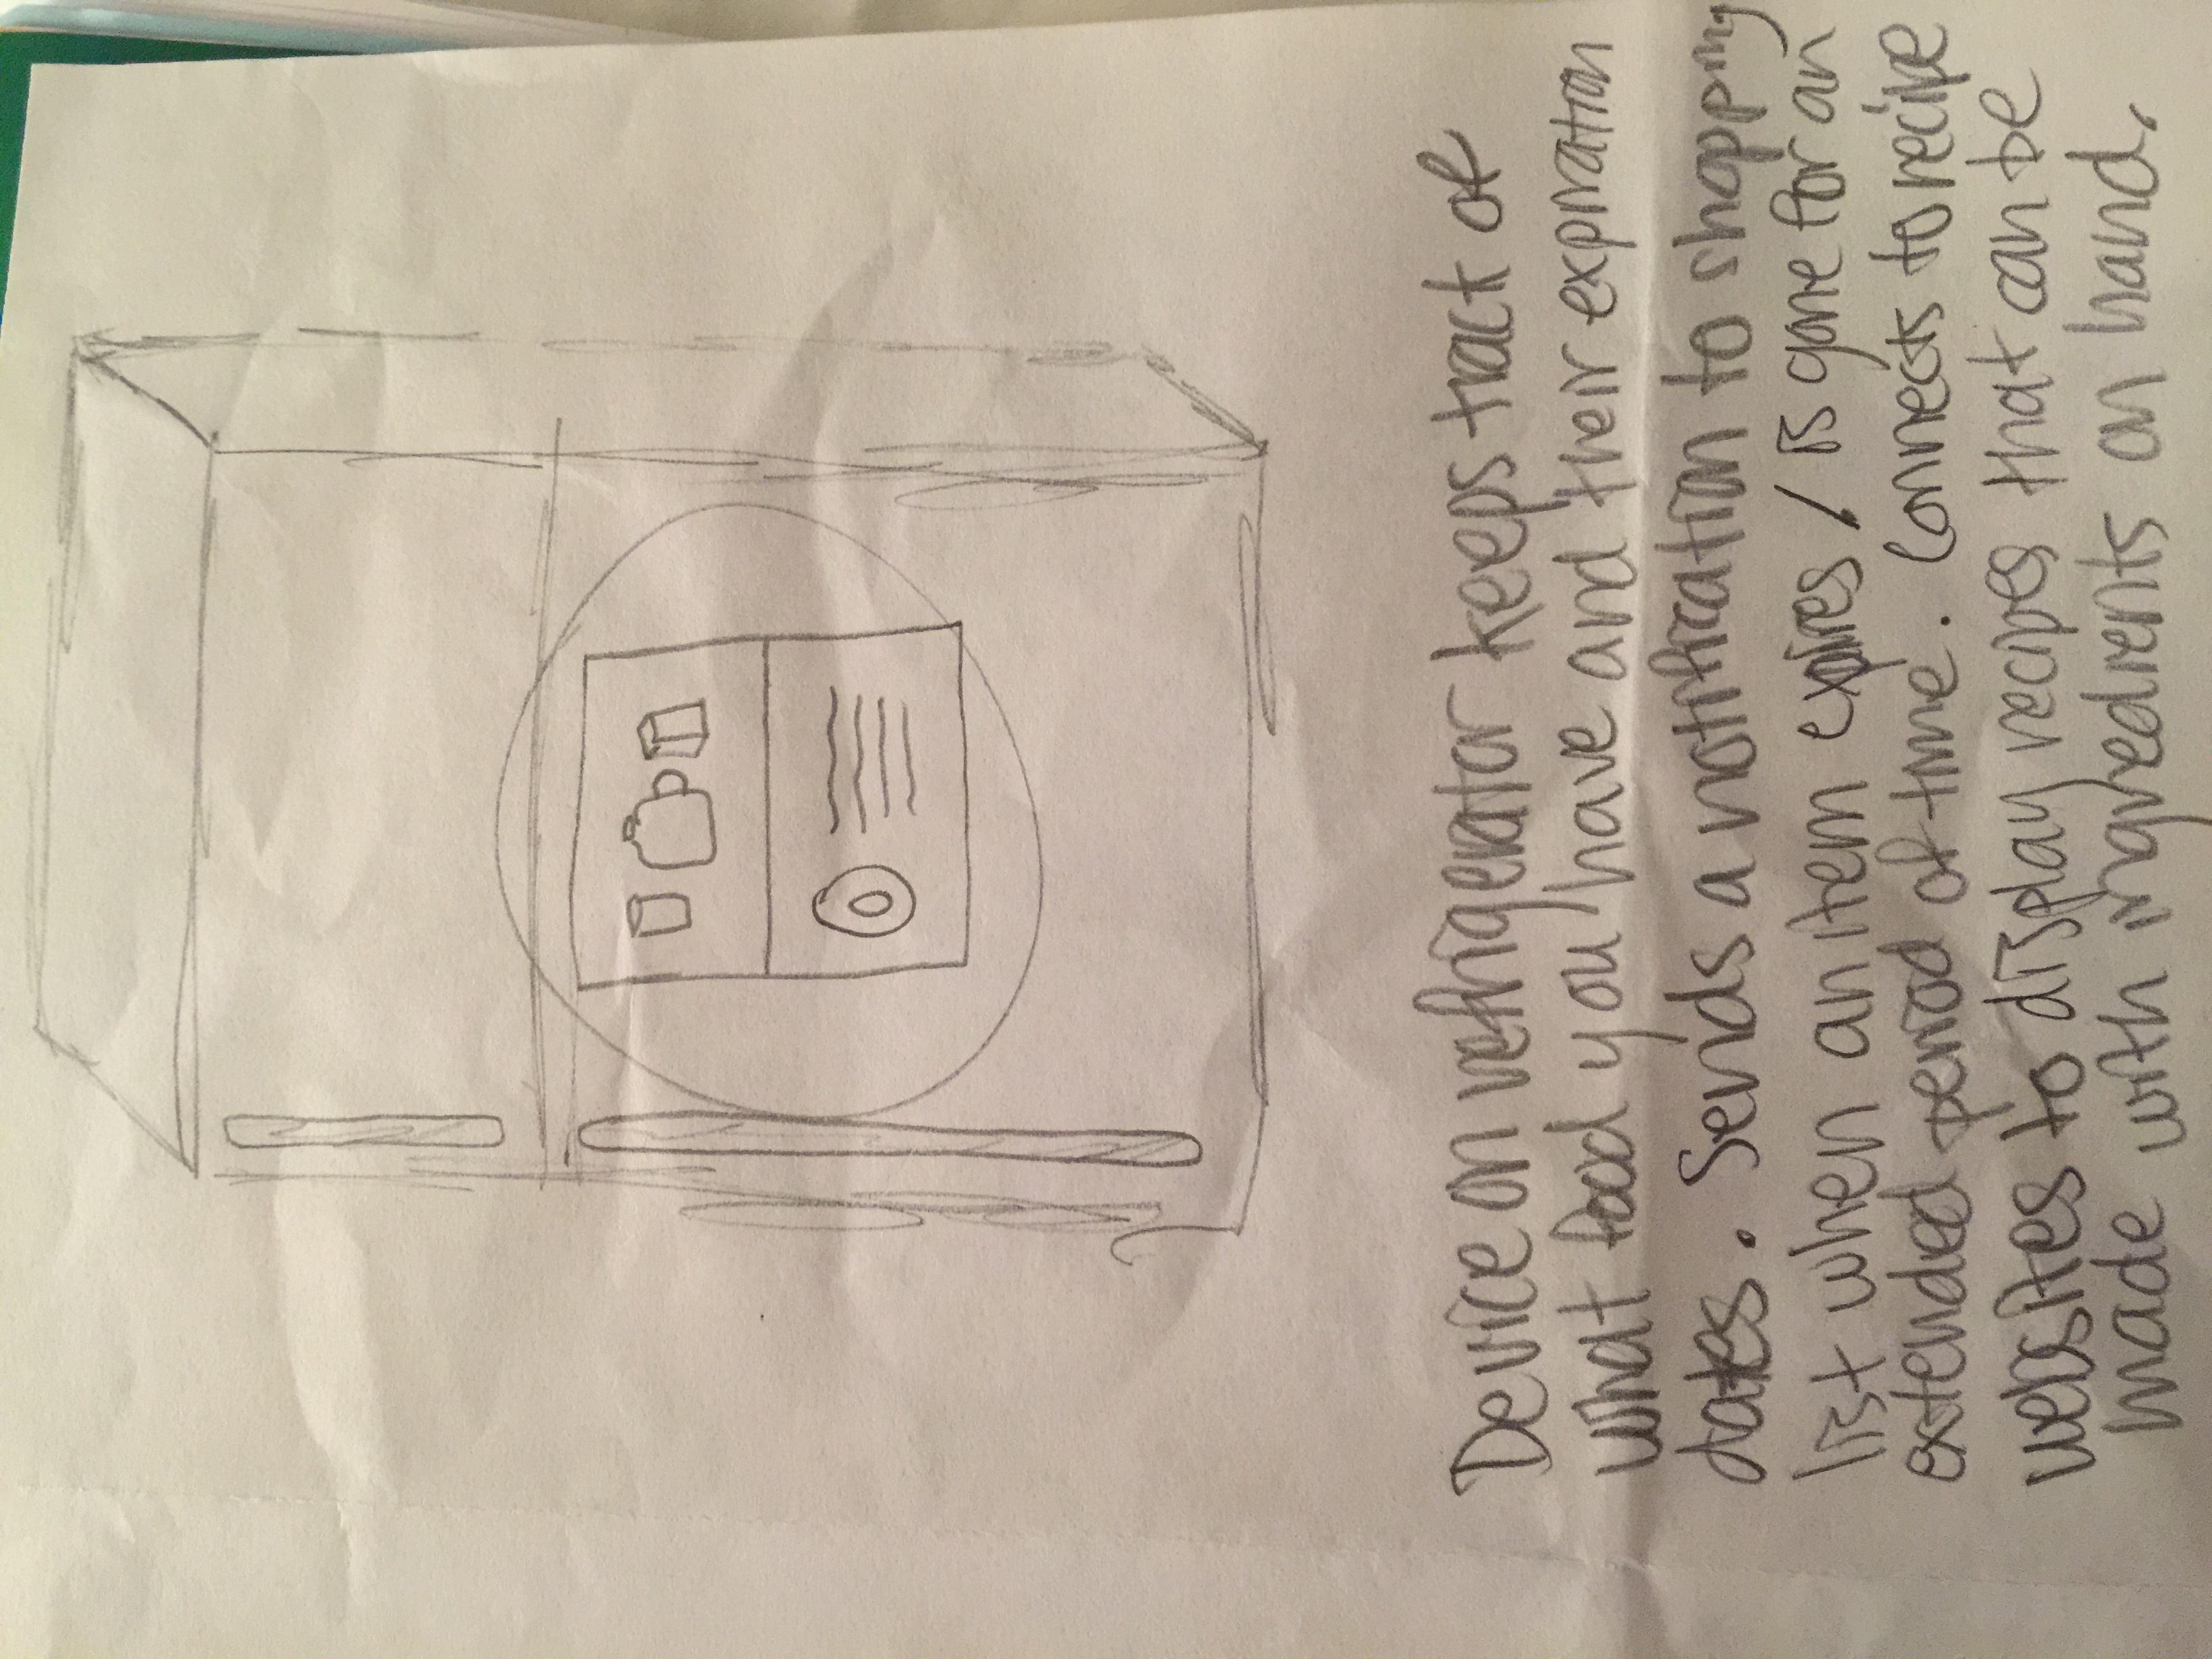 Device on refrigerator keeps track of
what food you have and their expiration
dates. Sends a notification to shopping
list when an item expires / is gone for an
extended period of time. Connects to recipe
websites to display recipes that can be
made with ingredients on hand.